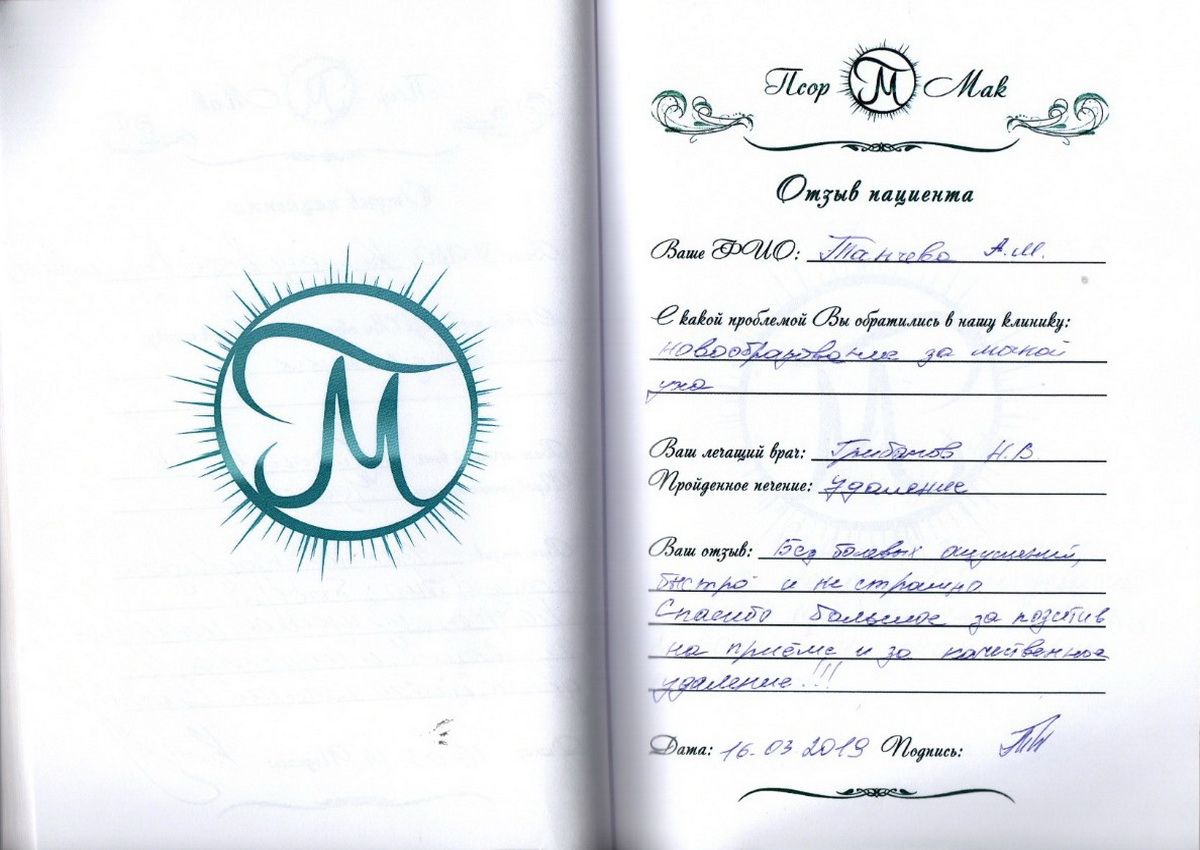 Псор ПМ Мак
Отзыв пациента
Ваше ФИО: Танчева А.М.
С какой проблемой Вы обратились в нашу клинику:
новообразование за мочкой
уха
Ваш лечащий врач: Грибанов Н.В.
Пройденное печение: удаление
Ваш отзыв: Без болевых ощущений,
быстро и не страшно
Спасибо большое за позитив
на приёме и за качественное
удаление!!!
Дата: 16.03 2019 Подпись: